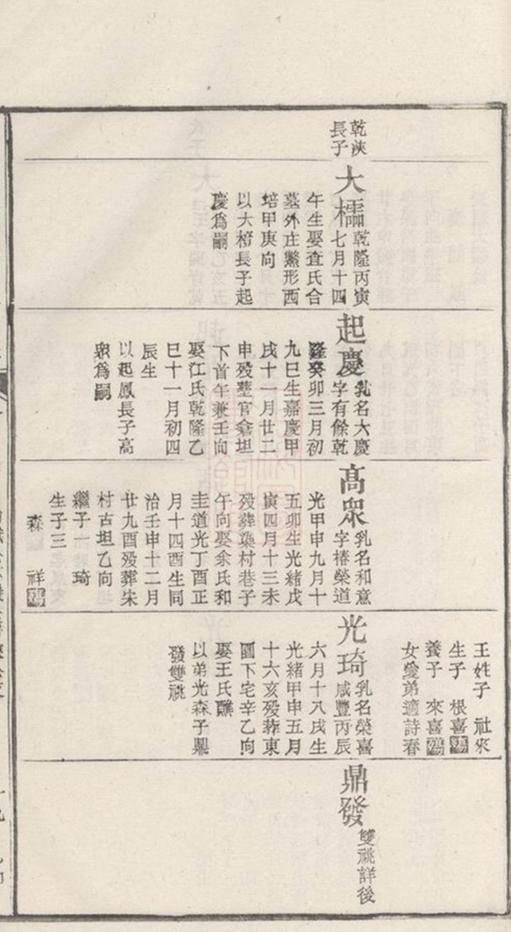 乾浹
長子
大櫺
乾隆丙寅
七月十四
午生娶査氏合
墓外庄鱉形西
培甲庚向
以大榜長子起
慶爲嗣
起慶
乳名大慶
字有餘乾
隆癸卯三月初
九巳生嘉慶甲
戌十二月廿二
申殁塟官倉坦
下首午兼壬向
娶江氏乾隆乙
巳十一月初四
辰生
以起鳳長子高
衆爲嗣
高衆
乳名和意
字椿榮道
光甲申九月十
五卯生光緒戊
寅四月十三未
殁葬葉村巷子
午向娶余氏和
圭道光丁酉正
月十四酉生同
治壬申十二月
廿九酉殁葬朱
村古坦乙向
繼子一 琦
生子三
森 祥殤
王姓子 社來
生子 根喜殤
養子 來喜殤
女愛弟適詩春
光琦
乳名榮喜
咸豐丙辰
六月十八戌生
光緒甲申五月
十六亥殁葬東
園下宅辛乙向
娶王氏醮
以弟光森子鼎
發雙祧
鼎發
雙祧詳後